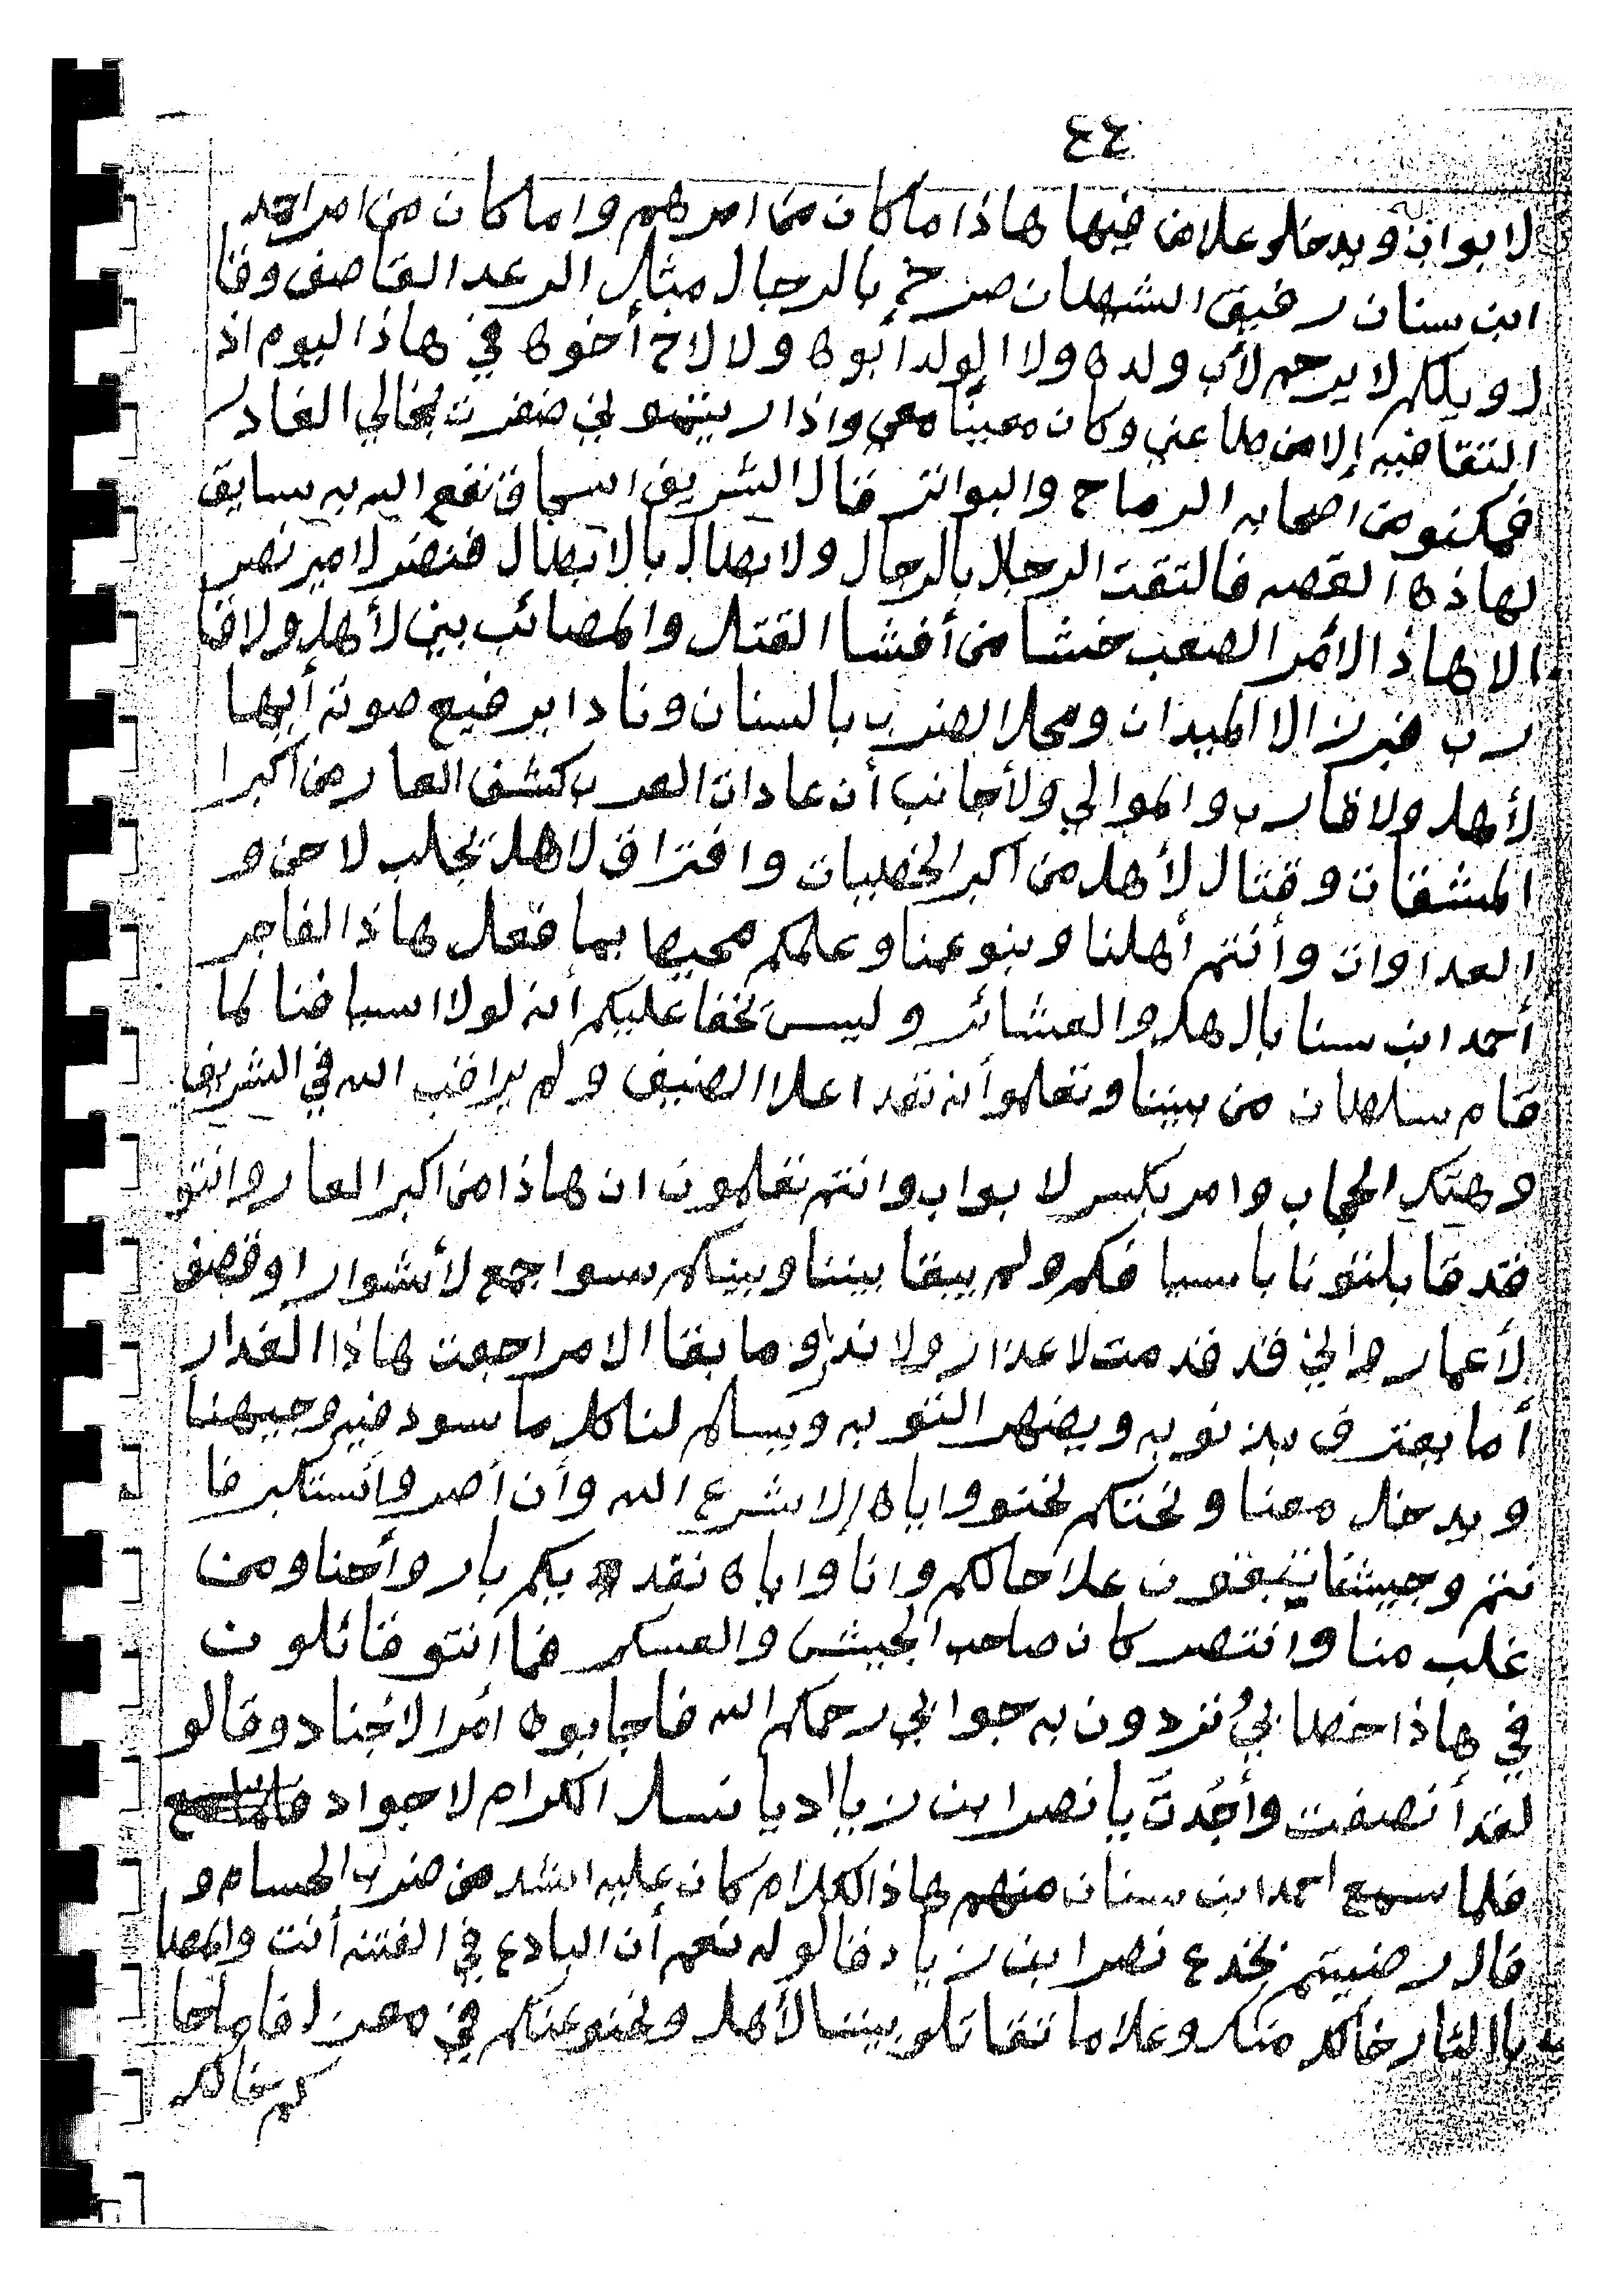 ٤٤
لابواب ويدخلو علا من فيها هاذا ماكان من امرهم واماكان من امر احمد
ابن سنان رفيق الشيطان صرخ بالرجال مثل الرعد القاصف وقا
لو يلكم لا يرحم لأب ولده ولا الولد أبوه ولا لاخ أخوه في هاذا اليوم اذ
التقا فيه إلا من طاعني وكان معينا معي واذا ريتموني ضفرت بخالي الغادر
فمكنو من اصحابه الرماح والبواتر قال الشريف اسحاق نفع الله به سايق
لهاذه القصه فالتقت الرجال بالرجال ولابطال بالابطال فنضر لامير نصر
الا هاذ الأمر الصعب خشا من أفشا القتل والمصائب بين لأهل ولاقا
رب فبرز الا الميدان ومحل الضرب بالسنان ونادا برفيع صوته أيها
لأهل ولاقارب والموالي ولأجانب أن عادات العرب كشف العار من اكبرا
المشقات وقتال لأهل من اكبر الخطيات وافتراق لاهل تجلب لاحن و
العداوات وأنتم أهلنا وبنو عمنا وعلمكم محيط بما فعل هاذ الفاجر
أحمد ابن سنا بال هل والعشائر وليس يخفا عليكم أنه لولا اسيافنا لما
قام سلطان من بيننا وتعلمو أنه تعدا علا الضيف ولم يراقب الله في الشريف
وهتك الحجاب وامر بكسر لابواب وانتم تعلمون ان هاذا من اكبر العار وانتو
قد قابلتونا باسيافكم ولم يبقا بيننا وبينكم سوا جمع لأشوار اوقصف
لأعمار واني قد قدمت لاعذار ولانذار وما بقا الا مراجعت هاذا الغدار
أما يعترف بذنوبه ويضهر التوبه ويسلم لنا كلما سود فيه وجيهنا
ويدخل معنا ونختكم نحنو واياه إلا شرع الله وأن أصر وأستكبر فا
نتم وجيشنا تبقون علا حالكم وانا واياه نقد بكم بار وأحنا ومن
غلب منا وانتصر كان صاحب الجيش والعسكر فما انتو قائلون
في هاذا خطابي تردون به جوابي رحمكم الله فاجابوه أمرا لاجناد وقالو
لقد أنصفت وأجُدتّ يا نصر ابن زيااد يا نسل الكرام لاجواد
فلما سمع احمد ابن سنان منهم هاذ الكلام كان عليه اشد من ضرب الحسام و
قال رضيتم بخدع نصر ابن زياد فقالو له نعم أن البادع في الفتنه أنت والمطا
با الثار خالك منك وعلا ما تقاتلو بيننا لأهل ونحنو عنكم في معزل فاصلحا
كم خالك